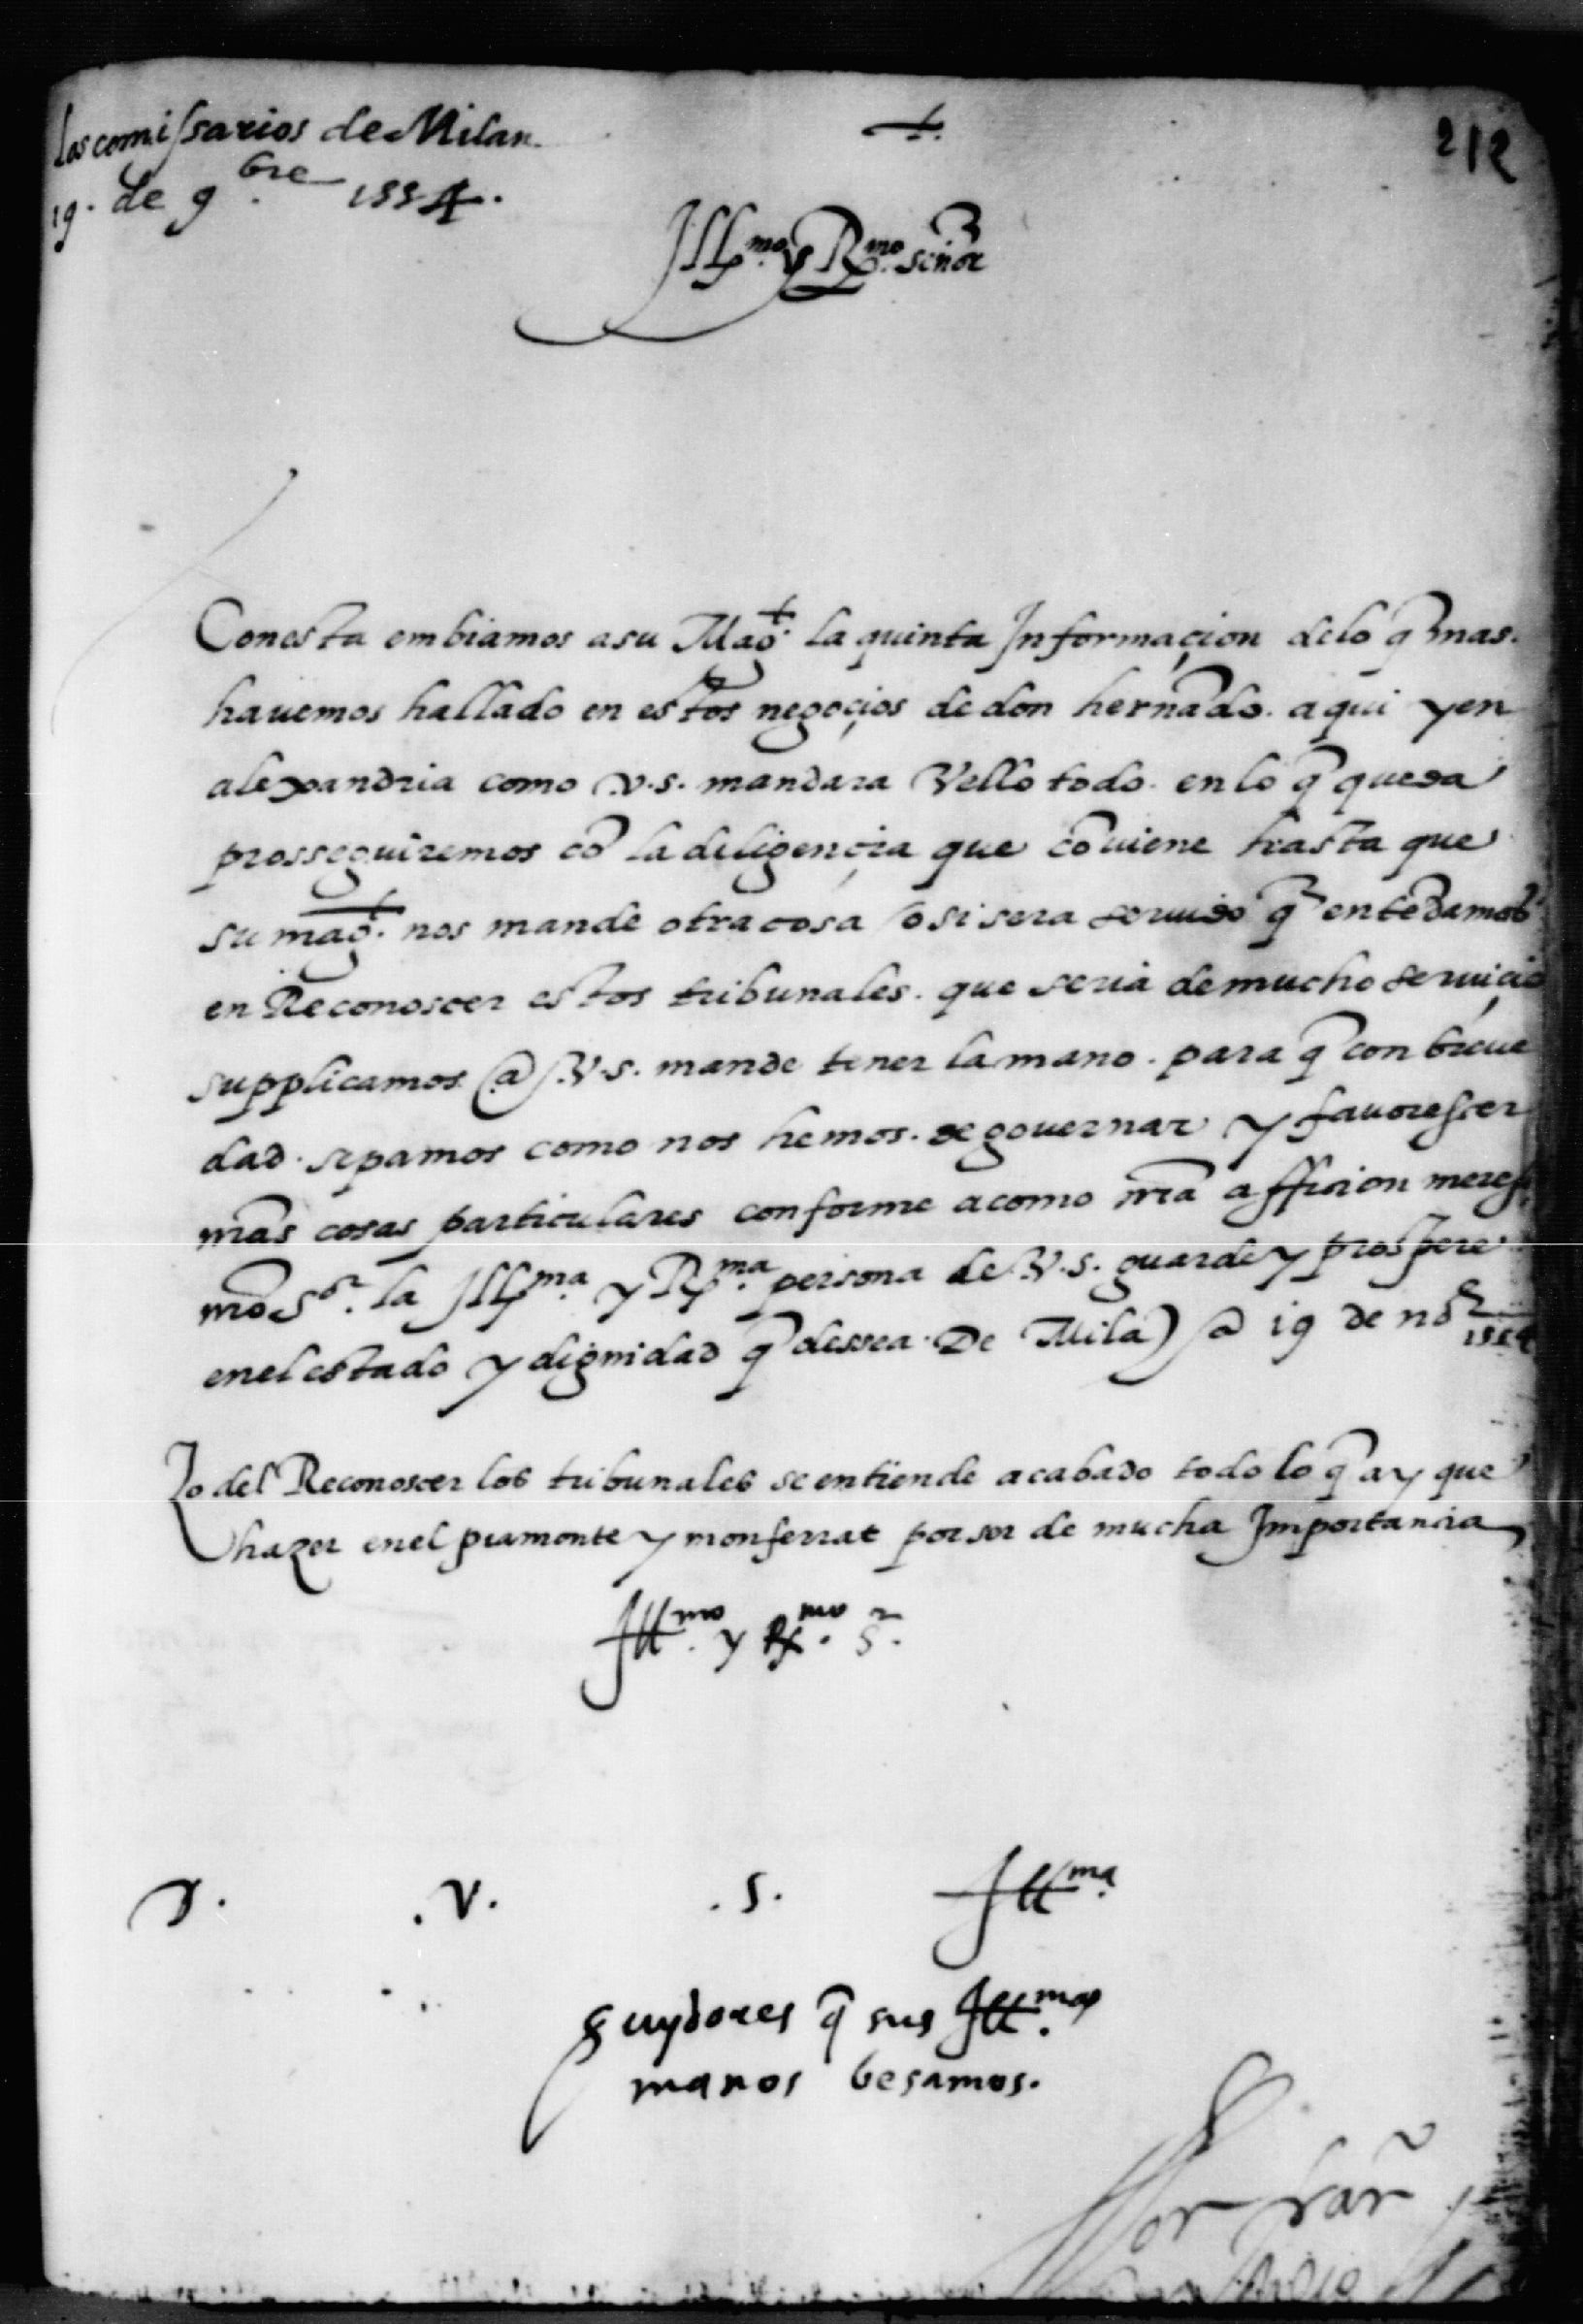 los comissarios de Milan.
19. de 9bre 1554.
+
212
Illmo y Rmo señor
Con esta embiamos a su Magt. la quinta Informaçion de lo q̃ mas.
hauemos hallado en estos negoçios de don hernãdo. aqui y en
alexandria como .v.s. mandara Vello todo. en lo q̃ queda
prosseguiremos cõ la diligençia que cõuiene hasta que
su magt. nos mande otra cosa / o si sera seruido q̃ entẽdamos
en Reconoscer estos tribunales. que seria de mucho seruiçio
supplicamos @ .V.s. mande tener la mano. para q̃ con breue
dad. sepamos como nos hemos. de gouernar y fauorescer
nr̃as cosas particulares conforme a como nr̃a affiçion meresce
nr̃o Sor. la Illma y Rma. persona de .V.s. guarde y prospere
en el estado y dignidad q̃ dessea. De Milã @ 19 de noe
1554
Lo del Reconoscer los tribunales se entiende acabado todo lo q̃ ay que
hazer en el piamonte y monferrat por ser de mucha Importancia
Illmo. y Rmo. Sr.
D. .V. .S. Illma.
seruydores q̃ sus Illmas.
manos besamos.